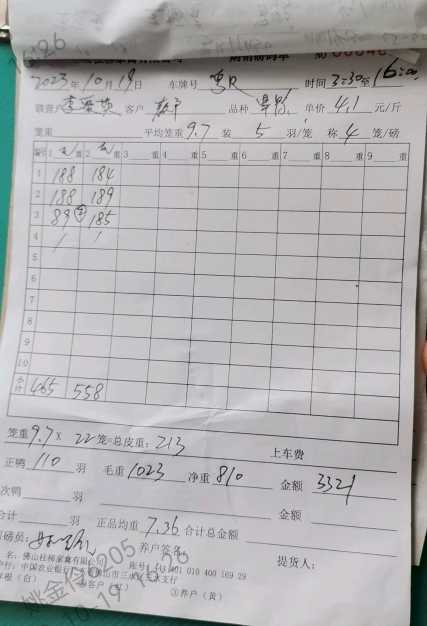 2023年10月19日 车牌号 粤R 时间 3:30至16:00
客户 品种 单价 4.1 元/斤
笼重 平均笼重 9.7 装 5 羽/笼 称 4 笼/磅
1 重 2 重 3 重 4 重 5 重 6 重 7 重 8 重 9 重
1 188 184
2 188 189
3 89 185
4 / /
5
6
7
8
9
10
合计 465 558
笼重 9.7 × 22 笼=总皮重: 213 上车费
正鸭 110 羽 毛重 1023 净重 810 金额 3321
次鸭 羽 金额
合计 羽 正品均重 7.36 合计总金额
司磅员: 养户签名: 提货人:
名: 佛山桂柳家禽有限公司
行: 中国农业银行 支行 账号: 401 010 400 169 29
存根(白) 客户(红) ③养户(黄)
姚金
10-19 16:26